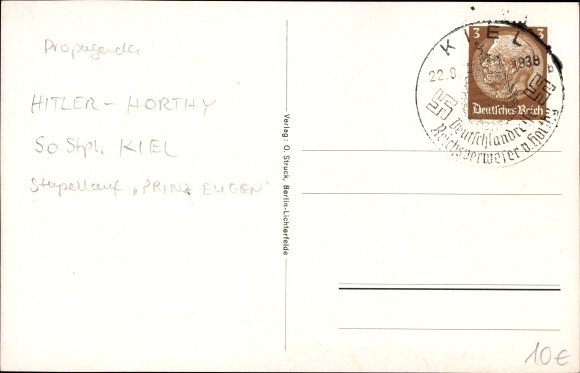 Propaganda
HITLER - HORTHY
So Stpl. KIEL
Stapellauf "PRINZ EUGEN"
Verlag: O. Struck, Berlin-Lichterfelde
3 3
KIEL
22.8. 1938
Deutsches Reich
Deutschlandreise
Reichsverweser v. Horthy
10€